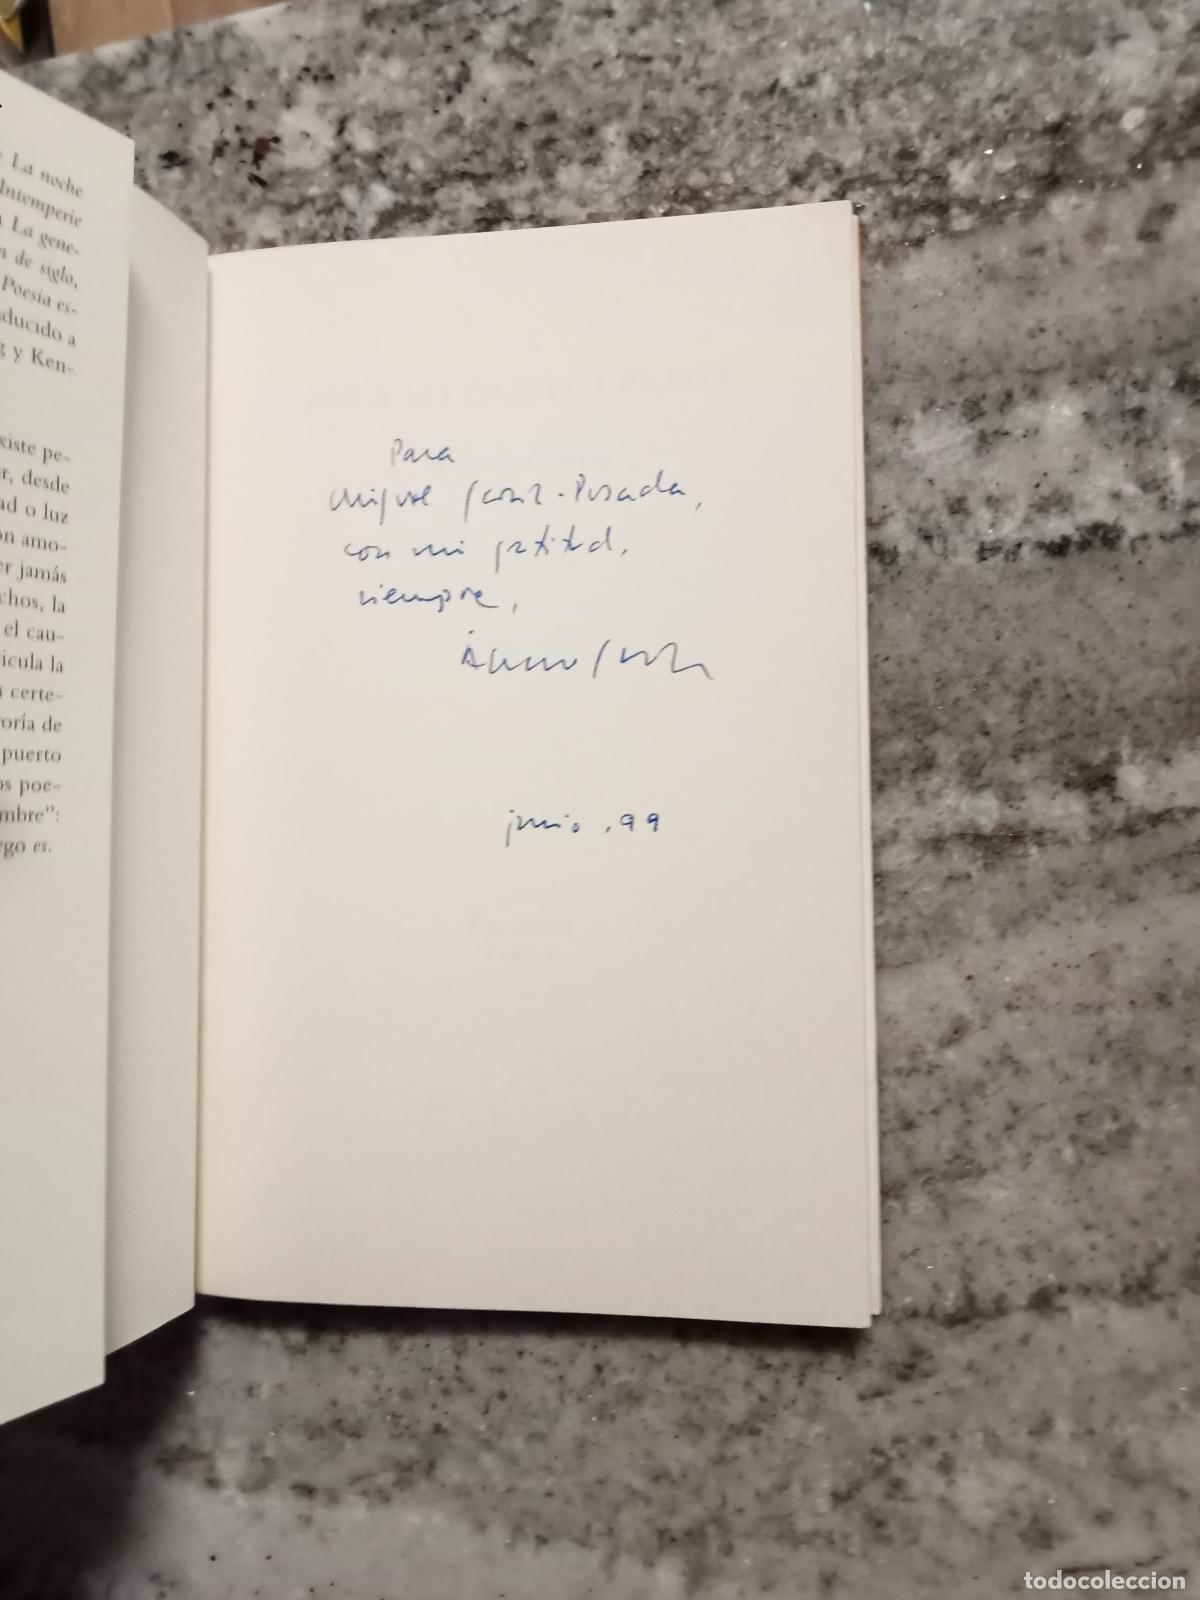 La noche
Intemperie
La gene-
de siglo,
Poesía es-
ducido a
y Ken-
xiste pe-
r, desde
ad o luz
ón amo-
er jamás
chos, la
el cau-
icula la
certe-
oría de
puerto
os poe-
mbre":
ego es.
Para
Miguel García-Posada,
con mi gratitud,
siempre,
Álvaro
junio, 99
todocoleccion